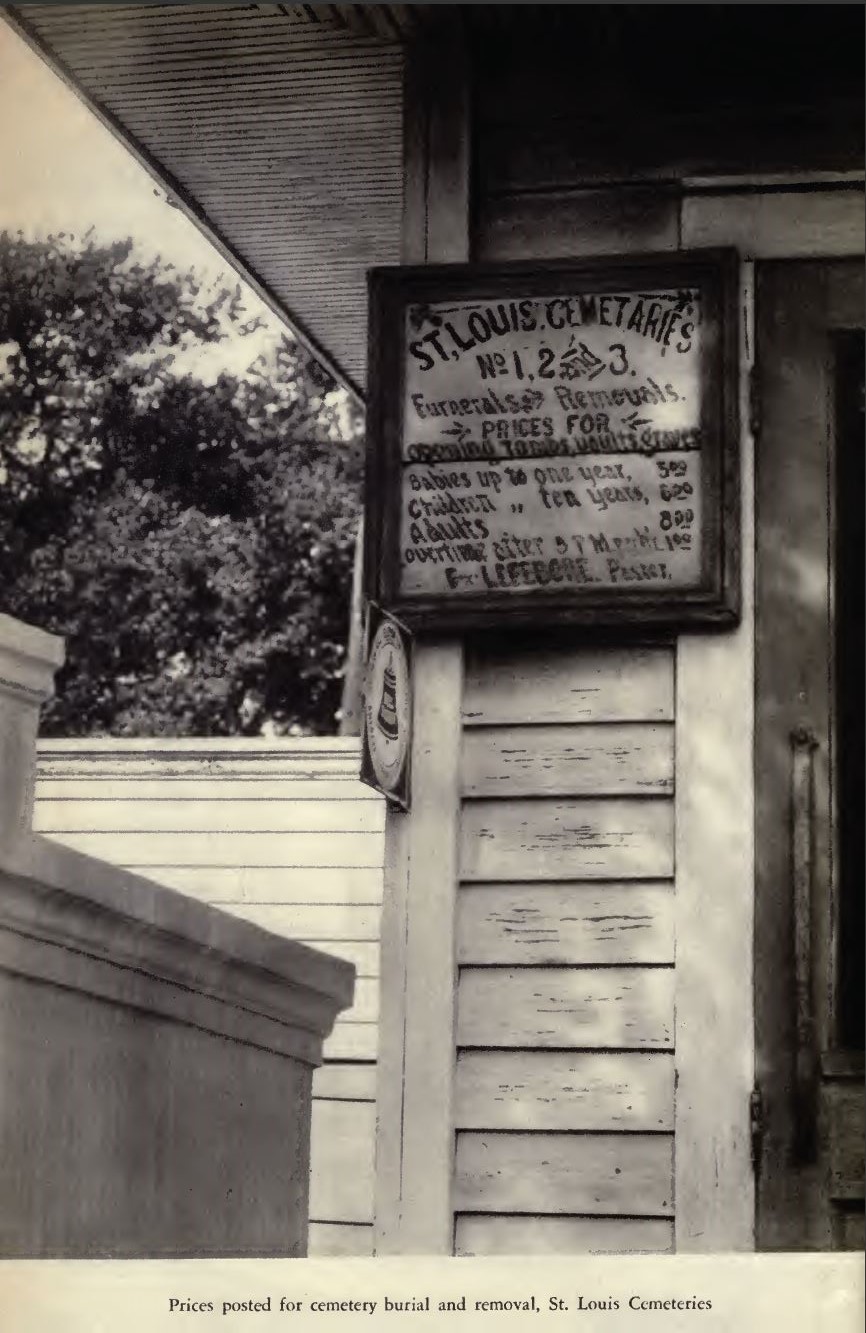 ST, LOUIS. CEMETARIES
Nº 1, 2 and 3.
Funerals and Removals.
PRICES FOR
opening Tombs, vaults, graves
Babies up to one year, 5 00
Children „ ten years, 6 00
Adults 8 00
overtime after 5 P M 1 00
F. LEFEBORE. Pastor.
Prices posted for cemetery burial and removal, St. Louis Cemeteries